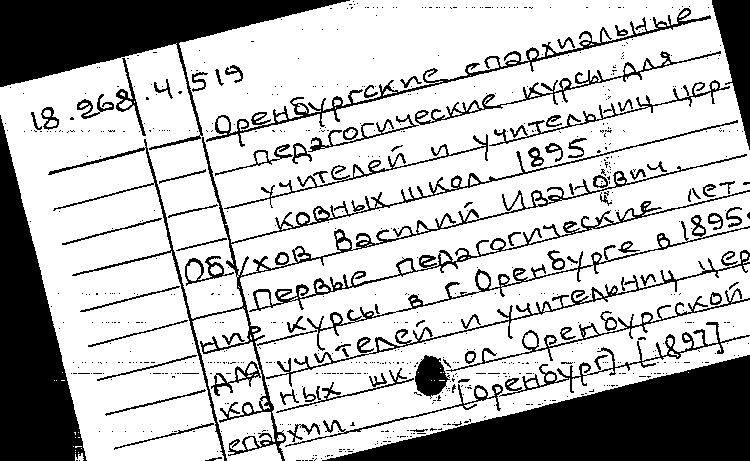 18.268.4.519
Оренбургские епархиальные
педагогические курсы для
учителей и учительниц цер-
ковных школ. 1895.
Обухов, Василий Иванович.
Первые педагогические лет-
ние курсы в г. Оренбурге в 1895г
для учителей и учительниц цер
ковных школ Оренбургской
епархии. [Оренбург], [1897]